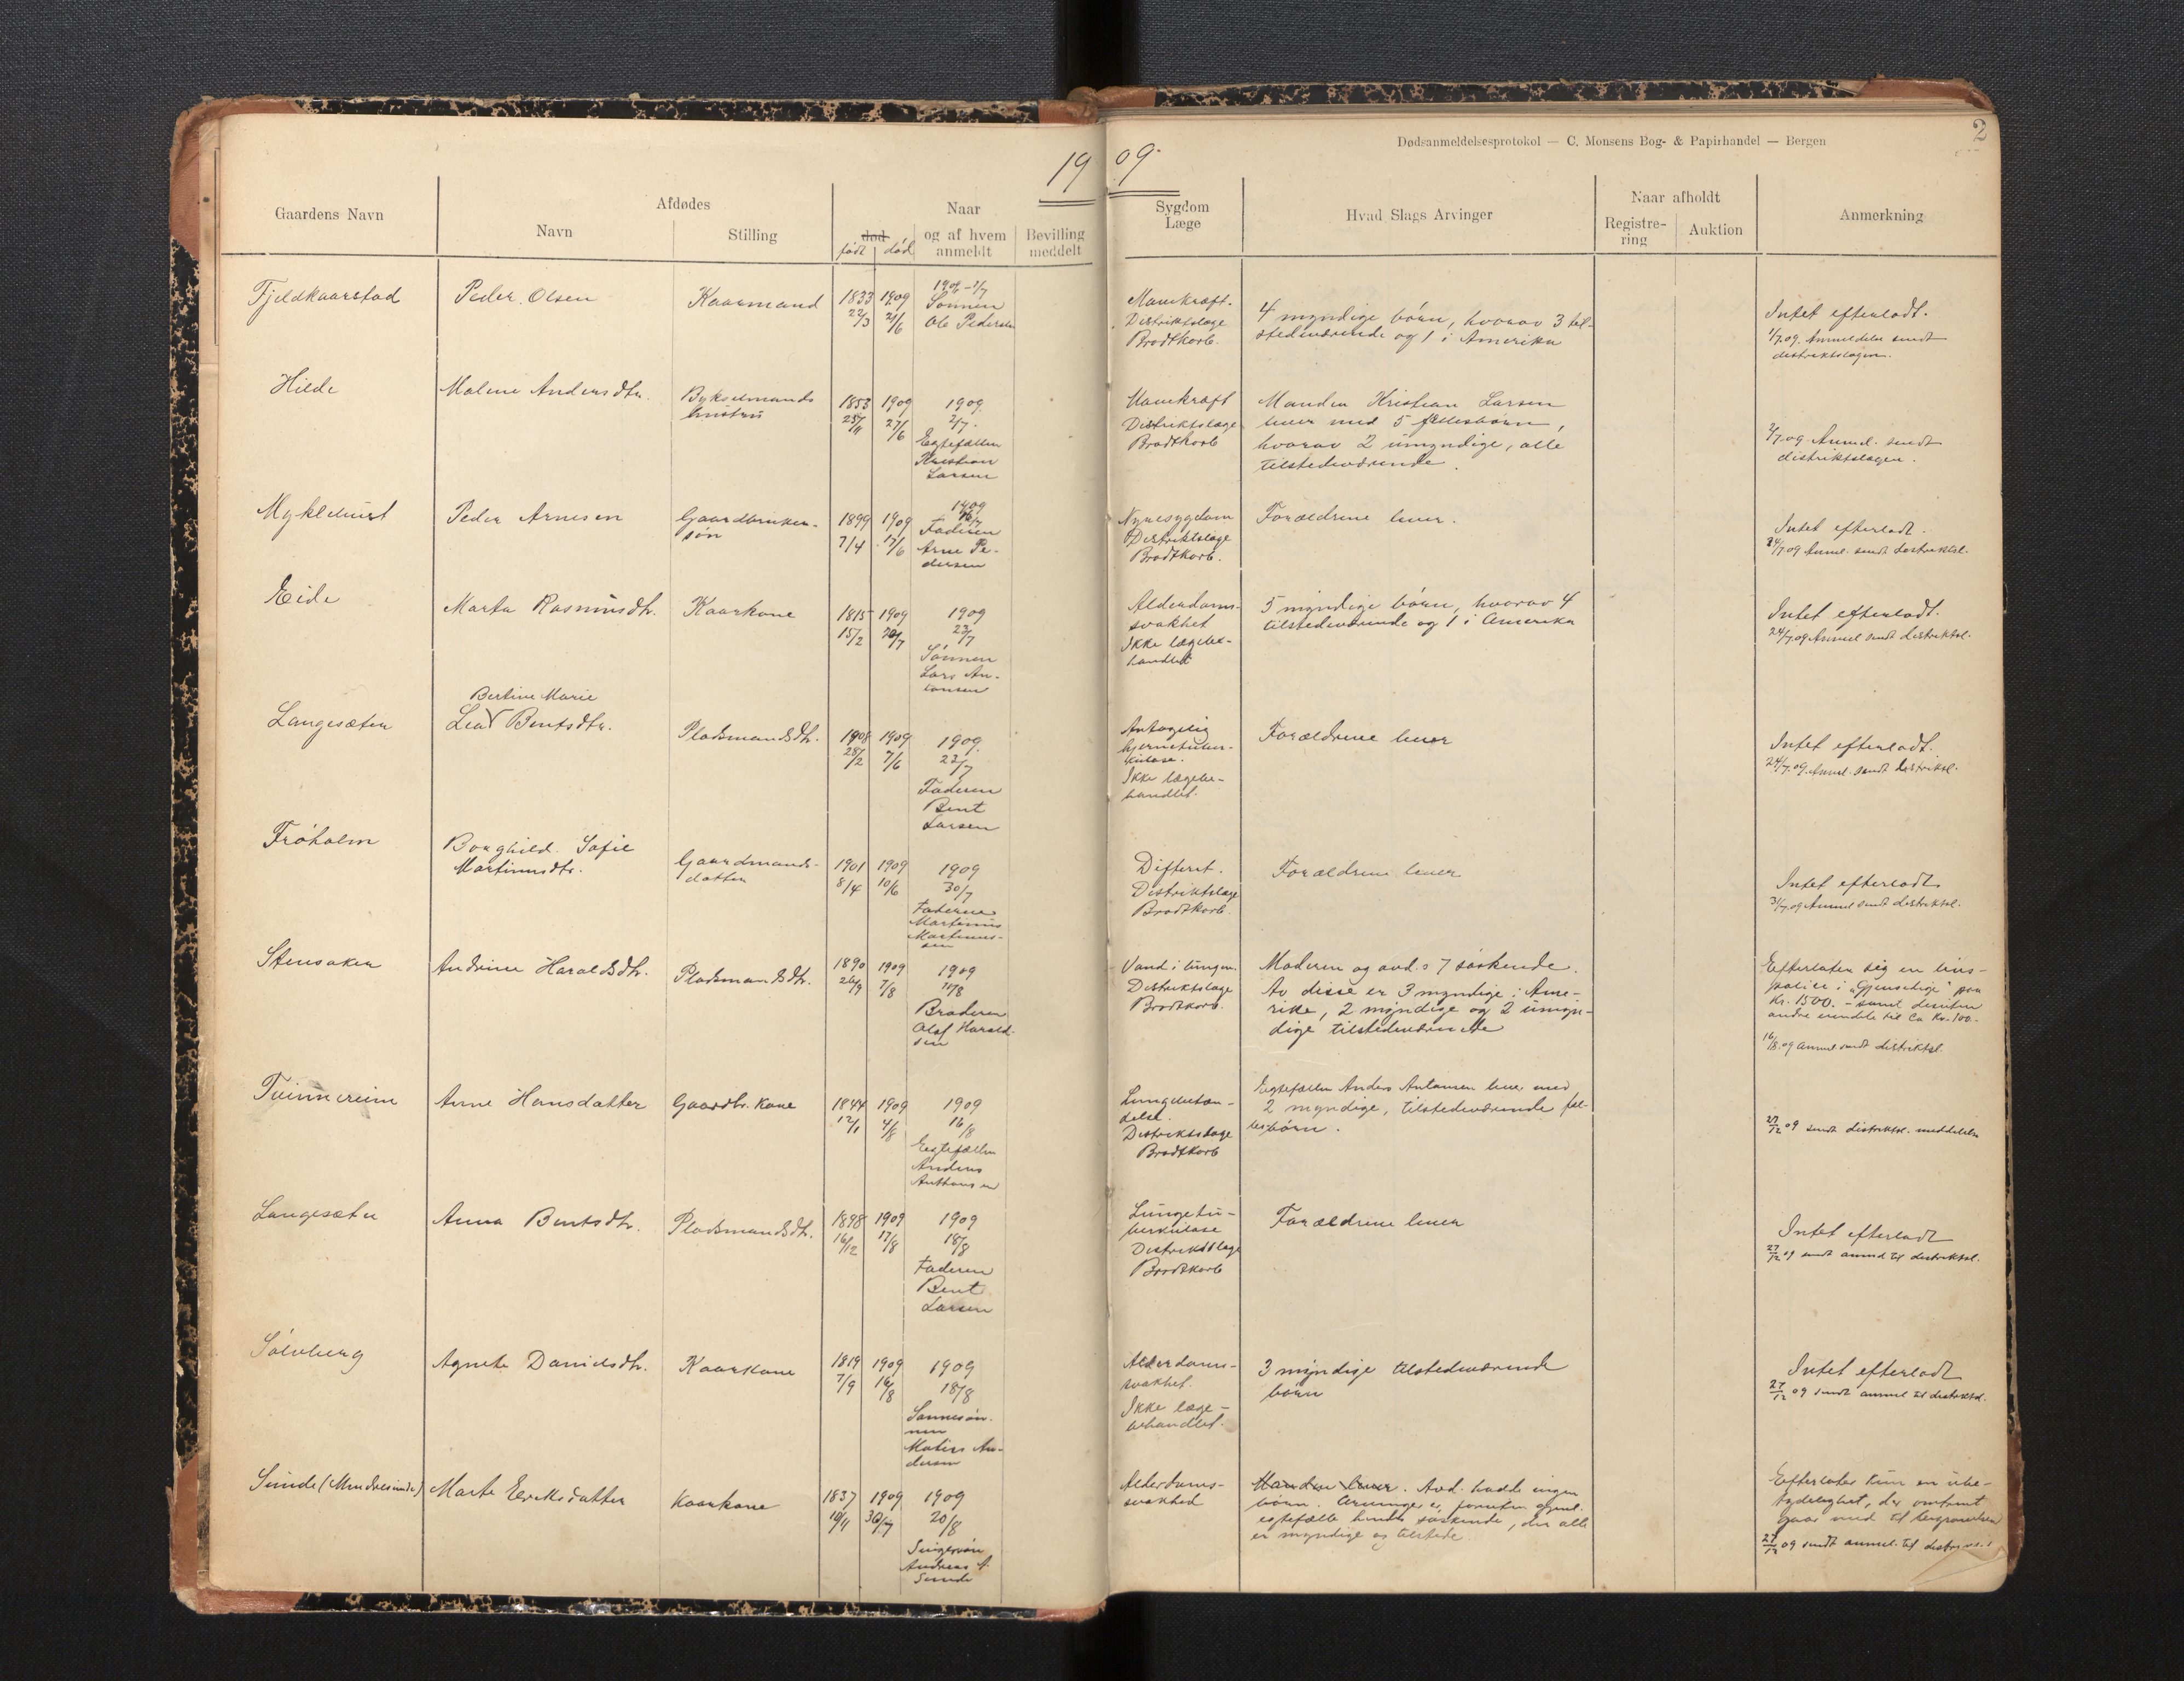 19 09.
Dødsanmeldelsesprotokol — C. Monsens Bog- & Papirhandel — Bergen
2
Gaardens Navn
Afdødes
Navn
Stilling
Naar
død
født død
og af hvem anmeldt
Bevilling meddelt
Sygdom
Læge
Hvad Slags Arvinger
Naar afholdt
Registre-
ring
Auktion
Anmerkning
Fjeldkaarstad
Peder Olsen
Kaarmand
1833 22/3
1909 21/6
1909 - 1/7
Sønnen
Ole Pedersen
Marekræft.
Distriktslæge
Brodtkorb.
4 myndige børn, hvorav 3 til-
stedeværende og 1 i Amerika
Intet efterladt.
1/7.09. Anmeldelse sendt
distriktslægen.
Hilde
Malene Andersdtr.
Bykselmands
hustru
1853 23/11
1909 27/6
1909.
2/7.
Egtefællen
Kristian
Larsen
Marekræft
Distriktslæge
Brodtkorb
Manden Kristian Larsen
lever med 5 fællesbørn,
hvorav 2 umyndige, alle
tilstedeværende.
2/7.09 Anmel. sendt
distriktslægen.
Myklebust
Peder Arnesen
Gaardbruker-
søn
1899 7/4
1909 17/6
1909
Faderen
Arne Pe-
dersen
Nyresygdom
Distriktslæge
Brodtkorb.
Forældrene lever.
Intet efterladt.
24/7.09 Anmel. sendt distriktsl.
Eide
Marta Rasmusdtr.
Kaarkone
1815 15/2
1909 20/7
1909
23/7
Sønnen
Lars An-
tonsen
Alderdoms-
svakhet
Ikke lægebe-
handlet
5 myndige børn, hvorav 4
tilstedeværende og 1 i Amerika
Intet efterladt.
24/7.09 Anmel sendt distriktsl.
Langesæter
Bertine Marie
Lea V Bentsdtr.
Pladsmandsdtr.
1908 28/2
1909 7/6
1909.
23/7
Faderen
Bent
Larsen
Antagelig
hjernetuber-
kulose.
Ikke lægebe-
handlet.
Forældrene lever
Intet efterladt.
24/7.09. Anmel. sendt distriktsl.
Frøholm
Borghild Sofie
Martinusdtr.
Gaardmands-
datter
1901 8/4
1909 10/6
1909
30/7
Faderen
Martinus
Martinus-
sen
Difterit.
Distriktslæge
Brodtkorb.
Forældrene lever
Intet efterladt
31/7.09 Anmel sendt distriktsl.
Stensaker
Andrine Haraldsdtr.
Pladsmandsdtr.
1890 26/9
1909 7/8
1909
11/8
Broderen
Olaf Harald-
sen
Vand i lungen.
Distriktslæge
Brodtkorb.
Moderen og avd.s 7 søskende.
Av disse er 3 myndige i Ame-
rika, 2 myndige og 2 umyn-
dige tilstedeværende
Efterlater sig en livs-
police i "Gjensidige" paa
Kr. 1500. - samt desuten
andre eiendele til ca Kr. 100.-
16/8.09 anmel sendt distriktsl.
Anne Hansdatter
Gaardbr. kone
1844 12/1
1909 4/8
1909
16/8
Egtefællen
Anders
Anthonsen
Lungebetæn-
delse.
Distriktslæge
Brodtkorb
Egtefællen Anders Antonsen lever med
2 myndige, tilstedeværende fæl-
lesbørn.
27/12 09 sendt distriktsl. meddelelse
Langesæter
Anna Bentsdtr.
Pladsmandsdtr.
1898 16/12
1909 17/8
1909
18/8
Faderen
Bent
Larsen
Lungetu-
berkulose
Distriktslæge
Brodtkorb
Forældrene lever
Intet efterladt
27/12 09 sendt anmel til distriktsl.
Sølvberg
Agnete Danielsdtr.
Kaarkone
1819 7/9
1909 16/8
1909
18/8
Sønnesøn-
nen
Matias An-
dersen
Alderdoms-
svakhet.
Ikke læge-
behandlet.
3 myndige tilstedeværende
børn
Intet efterladt
27/12 09 sendt anmel til distriktsl.
Sunde (Mindresunde)
Marte Eeriksdatter
Kaarkone
1837 10/11
1909 30/7
1909
20/8
Andreas A.
Sunde
Alderdoms-
svakhed
Manden lever. Avd. hadde ingen
børn. Arvinger er, foruten gjenl.
egtefælle hendes søskende, der alle
er myndige og tilstede.
Efterlater kun en ube-
tydelighet, der omtrent
gaar med til begravelsen
27/12 09 sendt anmel. til distriktsl.